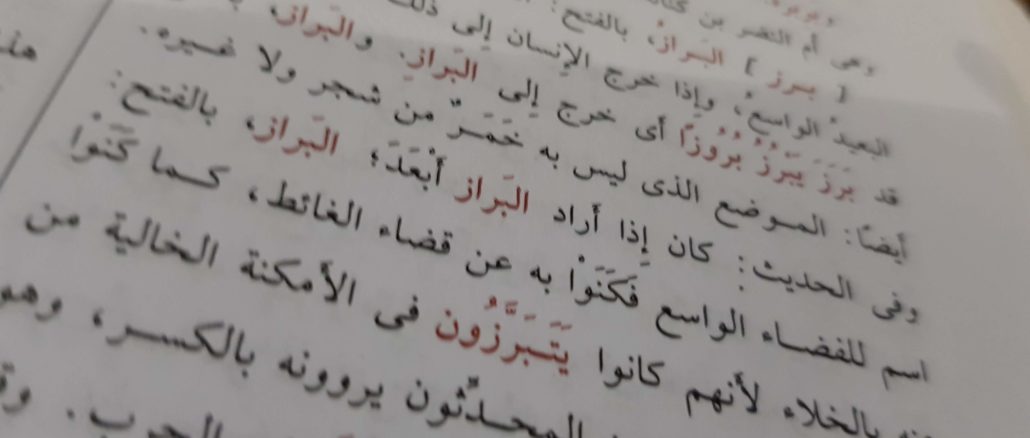 وهى أم النضر بن
[ برز ] البَراز، بالفتح: المكان
البعيدُ الواسعُ، وإذا خرج الإنسان إلى ذلك
قد بَرَزَ يَبْرُزُ بُرُوزًا أى خرج إلى البَرازِ. والبَراز،
أيضًا: الموضع الذى ليس به خَمَرٌ من شجر ولا غيره.
وفى الحديث: كان إِذا أراد البَراز أَبْعَدَ؛ البَراز، بالفتح:
اسم للفضاء الواسع فَكَنَوْا به عن قضاء الغائط، كما كَنَوْا
بالخلاء لأنهم كانوا يَتَبَرَّزُون فى الأمكنة الخالية من
المحدِّثون يروونه بالكسر، وهو